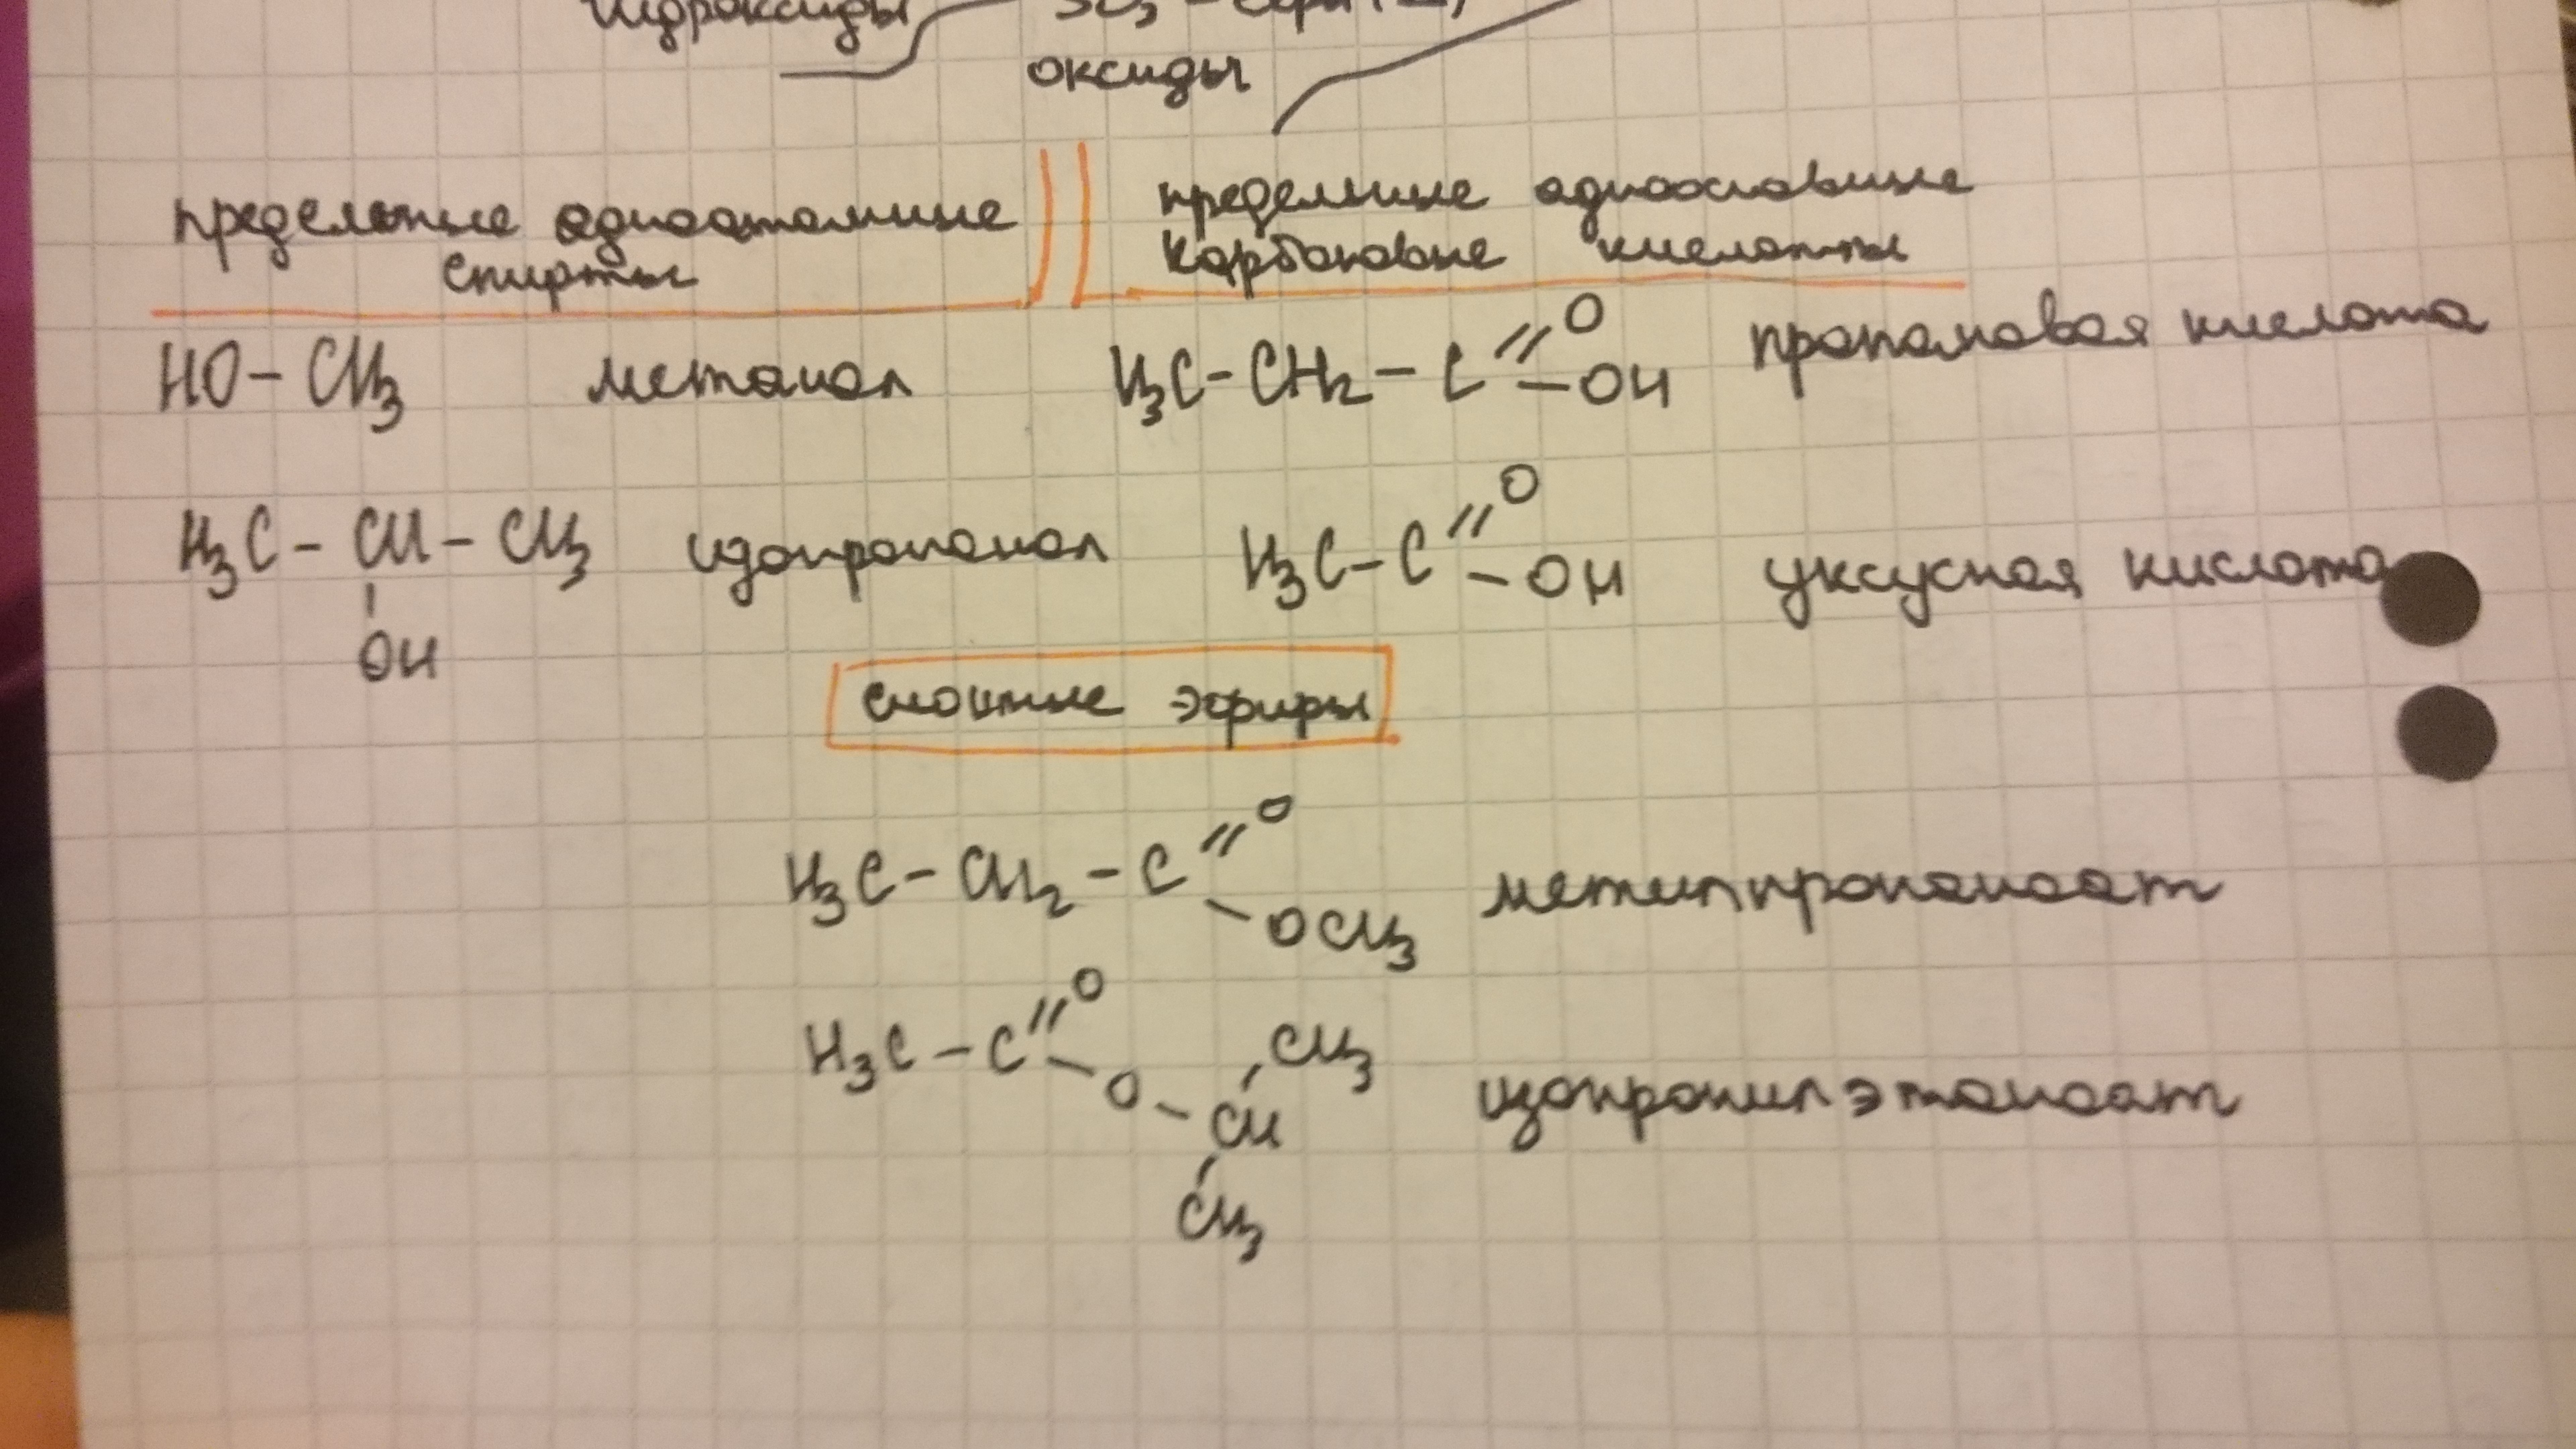 гидроксиды
оксиды
предельные одноатомные
спирты
предельные одноосновные
карбоновые кислоты
HO – CH₃ метанол
H₃C – CH₂ – C
=O
–OH
пропановая кислота
H₃C – CH – CH₃
OH
изопропанол
H₃C – C
=O
–OH
уксусная кислота
сложные эфиры
H₃C – CH₂ – C
=O
–OCH₃
метилпропаноат
H₃C – C
=O
– O – CH
CH₃
CH₃
изопропилэтаноат